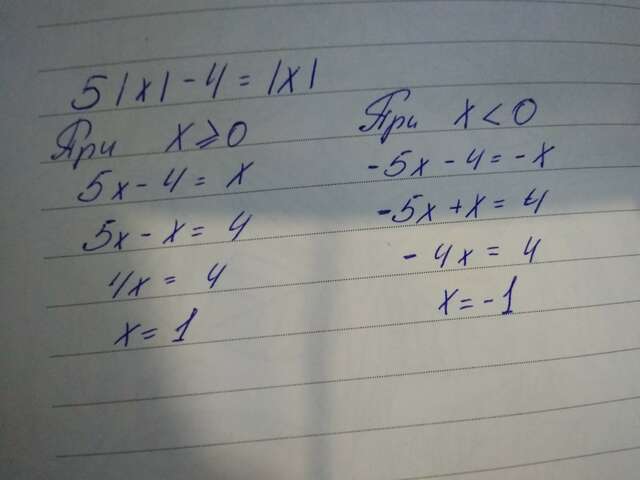 5|x| - 4 = |x|
При x ⩾ 0
5x - 4 = x
5x - x = 4
4x = 4
x = 1
При x < 0
-5x - 4 = -x
-5x + x = 4
-4x = 4
x = -1